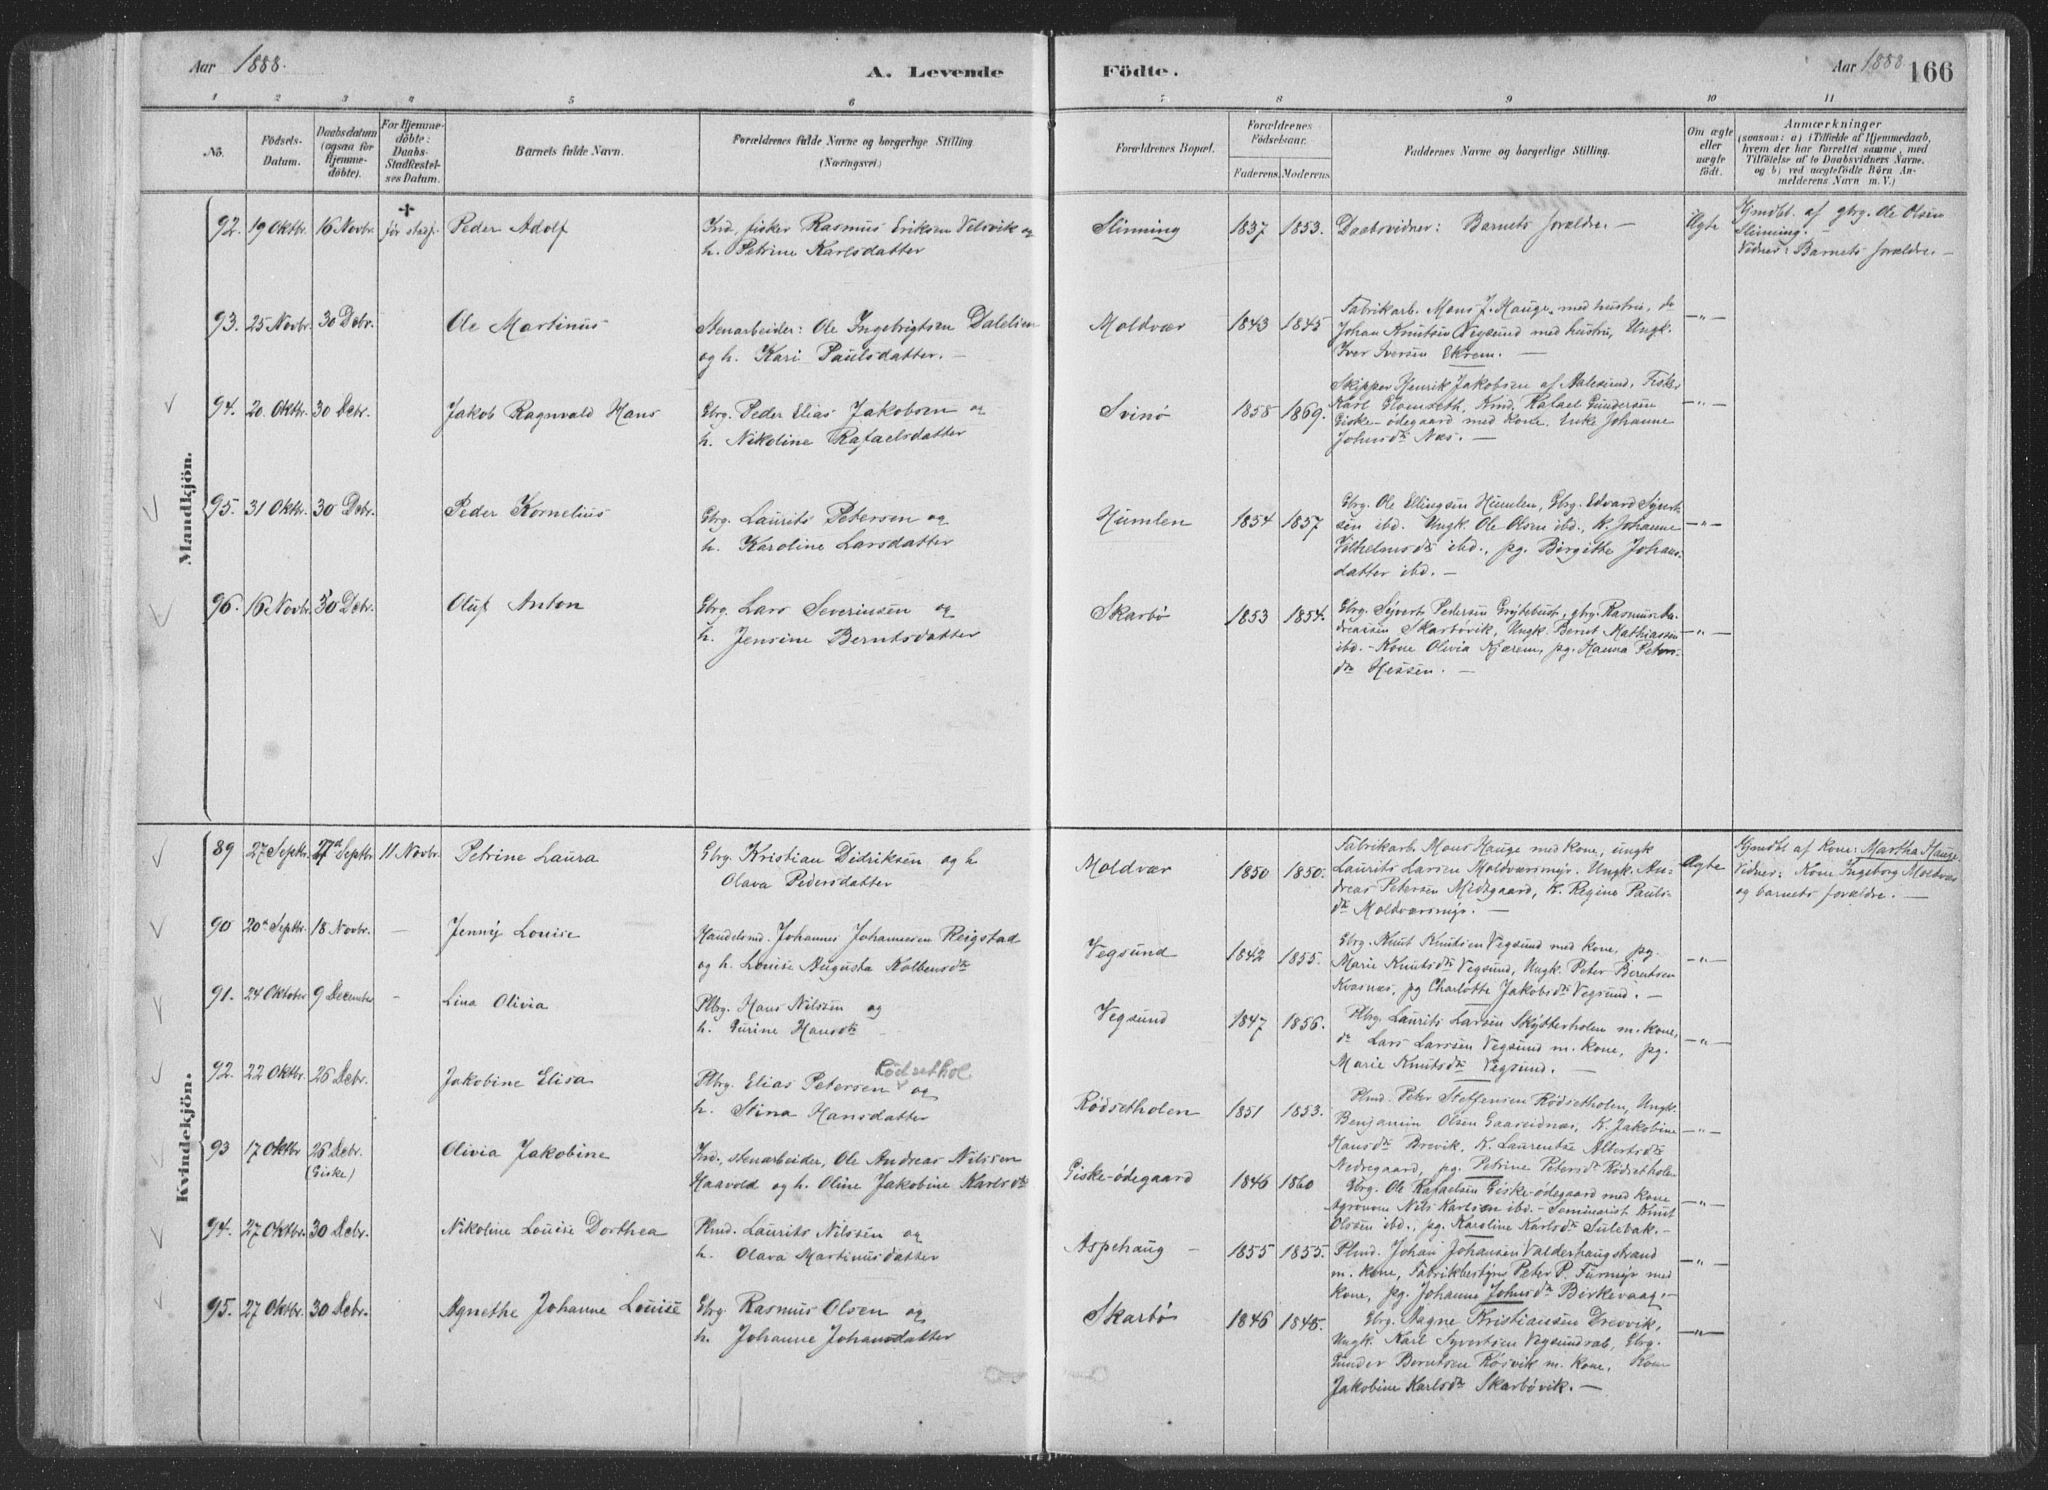 Aar 1888.
A. Levende
Födte.
Aar 1888
166
1 2 3 4 5 6 7 8 9 10 11
No.
Födsels-
Datum.
Daabsdatum
(ogsaa for
Hjemme-
döbte).
For Hjemme-
döbte:
Daabs-
Stadfæstel-
ses Datum.
Barnets fulde Navn.
Forældrenes fulde Navne og borgerlige Stilling
(Næringsvei)
Forældrenes Bopæl.
Forældrenes
Födselsaar.
Faderens. Moderens.
Faddernes Navne og borgerlige Stilling.
Om ægte
eller
uægte
födt.
Anmærkninger
(saasom: a) i Tilfælde af Hjemmedaab,
hvem der har forrettet samme, med
Tilföielse af to Daabsvidners Navne.
og b) ved uægtefödte Börn An-
melderens Navn m. V.)
Mandkjön.
92. 19 Oktbr. 16 Novbr. før stadf. Peder Adolf
Ind. fisker Rasmus Eriksen Velsvik og
h. Petrine Karlsdatter
Slinning 1837 1853. Daabsvidner: Barnets forældre. — Ægte
Hjmdbt. af gbrg. Ole Olsen
Slinning. —
Vidner: Barnets forældre. —
93. 25 Novbr. 30 Debr. Ole Martinus
Stenarbeider: Ole Ingebrigtsen Dalelien
og h. Kari Paulsdatter. —
Moldvær 1843 1845
Fabrikarb. Mons J. Hauge med hustru, do
Johan Knutsen Vegsund med hustru, Ungk.
Iver Iversen Ekrem. —
—"—
94. 20. Oktbr. 30 Debr. Jakob Ragnvald Hans
Gbrg. Peder Elias Jakobsen og
h. Nikoline Rafaelsdatter
Svinø 1858 1869.
Skipper Henrik Jakobsen af Aalesund, Fisker
Karl Homseth, Kmd. Rafael Gundersen
Giske-ødegaard med Kone. Enke Johanne
Johnsdtr Næs. —
—"—
95. 31 Oktbr. 30 Debr. Peder Kornelius
Gbrg. Laurits Petersen og
h. Karoline Larsdatter
Humlen 1854 1857
Gbrg. Ole Ellingsen Humlen, Gbrg. Edvard Syvert-
sen ibd. Ungk. Ole Olsen ibd., K. Johanne
Vilhelmsdtr ibd., pg. Birgitte Johans-
datter ibd. —
—"—
96. 16 Novbr. 30 Debr. Oluf Anton
Gbrg. Lars Severinsen og
h. Jensine Berntsdatter
Skarbø 1853 1854.
Gbrg. Syvert Pedersen Grytebust, gbrg. Rasmus An-
dreassen Skarbøvik, Ungk. Bernt Mathiassen
ibd. - Kone Olivia Kjærem, pg. Hanna Peters-
dtr Hessen. —
—"—
Kvindekjön.
89 27 Septbr. 27de Septbr 11 Novbr. Petrine Laura
Gbrg. Kristian Didriksen og h
Olava Pedersdatter
Moldvær 1850 1850.
Fabrikarb. Mons Hauge med kone, ungk
Laurits Larsen Moldværsmyr. Ungk. An-
dreas Petersen Midtgaard, K. Regine Pauls-
dtr Moldværsmyr. —
Ægte
Hjmdbt af Kone: Martha Hauge.
Vidner: Kone Ingeborg Moldvær
og barnets forældre. —
90 20de Septbr. 18 Novbr. — Jenny Louise
Handelsmd. Johannes Johannesen Reigstad
og h. Louise Augusta Kolbensdtr
Vegsund 1842 1855.
Gbrg. Knut Knutsen Vegsund med kone, pg.
Marie Knutsdtr Vegsund, Ungk. Peter Berntsen
Kvasnæs, pg Charlotte Jakobsdtr Vegsund. —
—"—
91. 24 Oktober 9 December - Lina Olivia
Plbrg. Hans Nilsen og
h. Gurine Hansdtr
Vegsund 1847 1856.
Plbrg. Laurits Larsen Skytterholen m. kone,
do Lars Larssen Vegsund m. kone, pg.
Marie Knutsdtr Vegsund. —
—"—
92. 22 Oktbr. 26 Debr. Jakobine Elisa
Rödsethol
Plbrg. Elias Petersen og
h. Stina Hansdatter
Rødsetholen 1851 1853.
Plmd. Peter Steffensen Rødsetholen, Ungk.
Benjamin Olsen Gaaseidnæs, K. Jakobine
Hansdtr Brevik, K. Laurentse Albertsdtr
Nedregaard, pg. Petrine Petersdtr Rødsetholen
—"—
93 17 Oktbr 26 Debr.
(Giske)
Olivia Jakobine
Ind., stenarbeider, Ole Andreas Nilssen
Haavold og h. Oline Jakobine Karlsdtr
Giske-ødegaard 1846 1860
Gbrg. Ole Rafaelsen Giske-ødegaard med kone
Agronom Nils Karlsen ibd. - Seminarist Knut
Olsen ibd., pg. Karoline Karlsdtr Sulebak. —
—"—
94. 27 Oktbr. 30 Debr. Nikoline Louise Dorthea
Plmd. Laurits Nilsen og
h. Olava Martinusdatter
Aspehaug — 1855 1855.
Plmd. Johan Johansen Valderhaugstrand
m. kone, Fabrikbestyrer Peter P. Furmyr med
kone, pg. Johanne Johnsdtr Birkevaag. —
—"—
95. 27 Oktbr. 30 Debr. Agnethe Johanne Louise
Gbrg Rasmus Olsen og
h. Johanne Johansdatter
Skarbø 1846 1845.
Gbrg. Magne Kristiansen Drevvik,
Ungk. Karl Syvertsen Vegsundsab, Gbrg.
Gunder Berntsen Røsvik m. kone, Kone
Jakobine Karlsdtr Skarbøvik. —
—"—